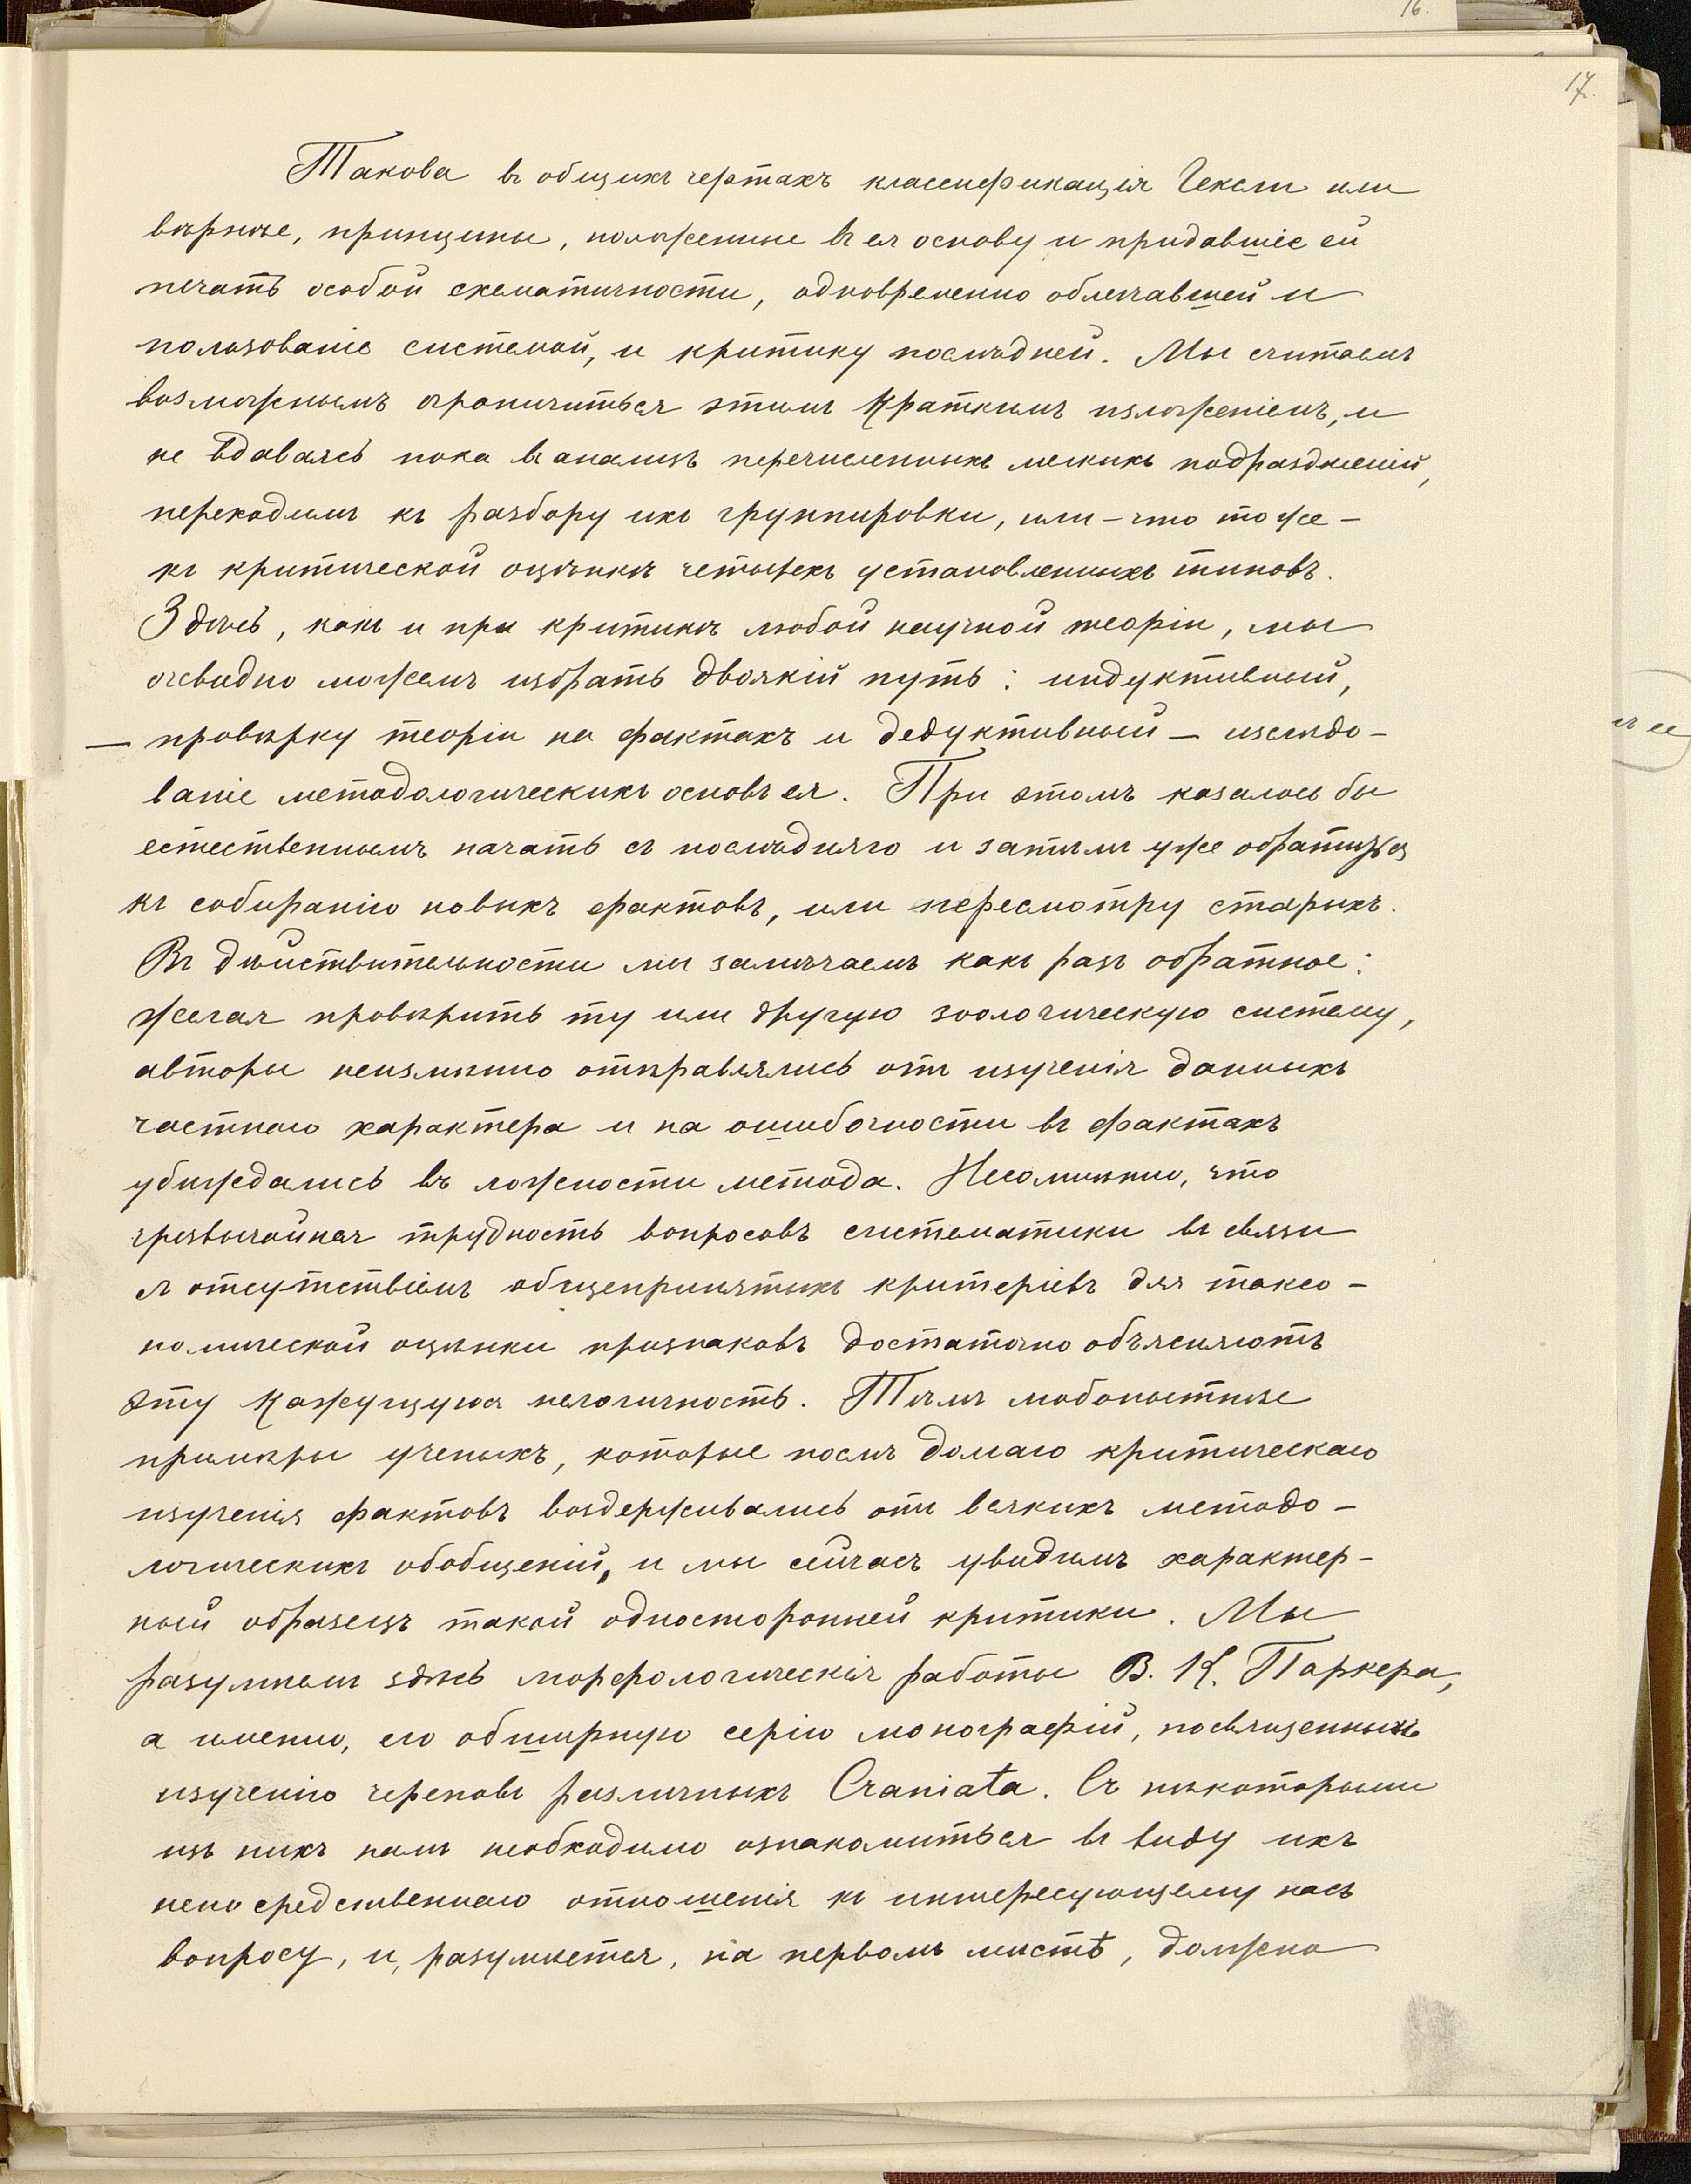 16.
17.
Такова въ общихъ чертахъ классификація Гексли или
вѣрнѣе, принципы, положенные въ ея основу и придавшіе ей
печать особой схематичности, одновременно облегчавшей и
пользованіе системой, и критику послѣдней. Мы считаемъ
возможнымъ ограничиться этимъ краткимъ изложеніемъ, и
не вдаваясь пока въ анализъ перечисленныхъ мелкихъ подраздѣленій,
переходимъ къ разбору ихъ группировки, или – что тоже –
къ критической оцѣнкѣ четырехъ установленныхъ типовъ.
Здѣсь, какъ и при критикѣ любой научной теоріи, мы
очевидно можемъ избрать двоякій путь: индуктивный,
— провѣрку теоріи на фактахъ и дедуктивный – изслѣдо-
ваніе методологическихъ основъ ея. При этомъ казалось бы
естественнымъ начать съ послѣдняго и затѣмъ уже обратиться
къ собиранію новыхъ фактовъ, или пересмотру старыхъ.
Въ дѣйствительности мы замѣчаемъ какъ разъ обратное:
желая провѣрить ту или другую зоологическую систему,
авторы неизмѣнно отправлялись отъ изученія данныхъ
частнаго характера и на ошибочности въ фактахъ
убѣждались въ ложности метода. Несомнѣнно, что
чрезвычайная трудность вопросовъ систематики въ связи
съ отсутствіемъ общепринятыхъ критеріевъ для таксо-
номической оцѣнки признаковъ достаточно объясняютъ
эту кажущуюся нелогичность. Тѣмъ любопытнѣе
примѣры ученыхъ, которые послѣ долгаго критическаго
изученія фактовъ воздерживались отъ всякихъ методо-
логическихъ обобщеній, и мы сейчасъ увидимъ характер-
ный образецъ такой односторонней критики. Мы
разумѣемъ здѣсь морфологическія работы В. К. Паркера,
а именно, его обширную серію монографій, посвященныхъ
изученію череповъ различныхъ Craniata. Съ нѣкоторыми
изъ нихъ намъ необходимо ознакомиться въ виду ихъ
непосредственнаго отношенія къ интересующему насъ
вопросу, и, разумѣется, на первомъ мѣстѣ, должно